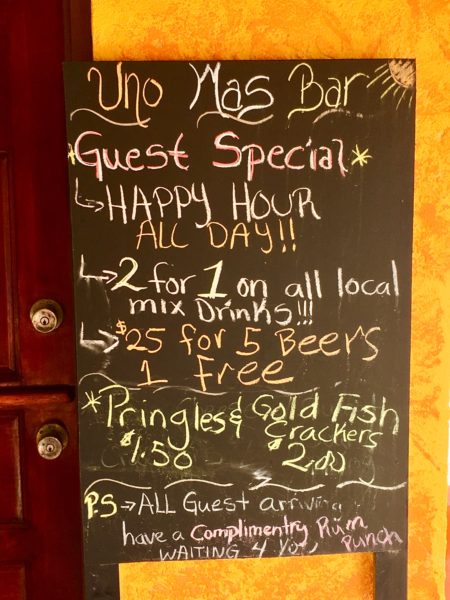 Uno Mas Bar
*Guest Special*
↳HAPPY HOUR
ALL DAY!!
↳2 for 1 on all local
mix Drinks!!!
↳$25 for 5 Beers
1 Free
*Pringles & Gold Fish
Crackers
$1.50 $2.00
P.S → ALL Guest arriving
have a Complimentry Rum
Punch
WAITING 4 You